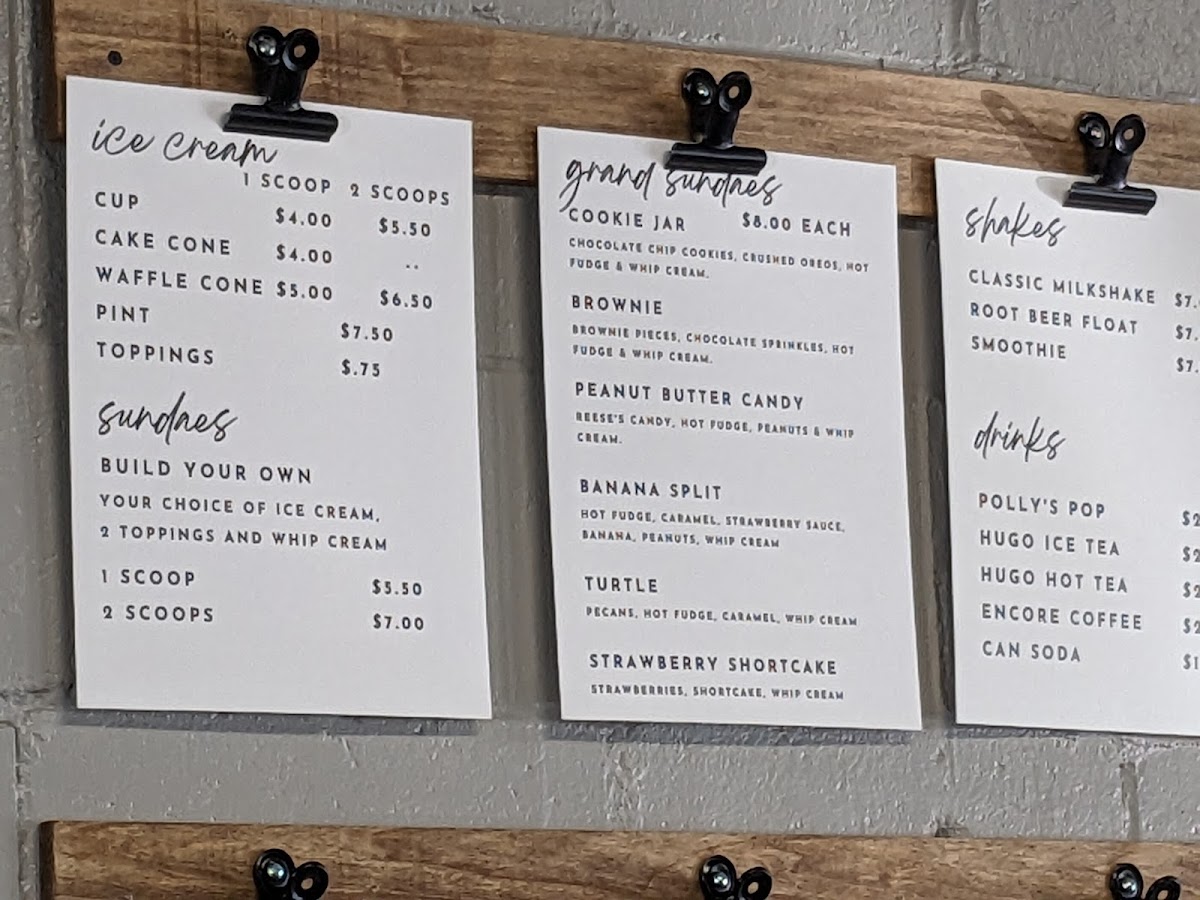 ice cream
1 SCOOP 2 SCOOPS
CUP $4.00 $5.50
CAKE CONE $4.00 ..
WAFFLE CONE $5.00 $6.50
PINT $7.50
TOPPINGS $.75
sundaes
BUILD YOUR OWN
YOUR CHOICE OF ICE CREAM,
2 TOPPINGS AND WHIP CREAM
1 SCOOP $5.50
2 SCOOPS $7.00
grand sundaes
COOKIE JAR $8.00 EACH
CHOCOLATE CHIP COOKIES, CRUSHED OREOS, HOT
FUDGE & WHIP CREAM.
BROWNIE
BROWNIE PIECES, CHOCOLATE SPRINKLES, HOT
FUDGE & WHIP CREAM.
PEANUT BUTTER CANDY
REESE'S CANDY, HOT FUDGE, PEANUTS & WHIP
CREAM.
BANANA SPLIT
HOT FUDGE, CARAMEL, STRAWBERRY SAUCE,
BANANA, PEANUTS, WHIP CREAM
TURTLE
PECANS, HOT FUDGE, CARAMEL, WHIP CREAM
STRAWBERRY SHORTCAKE
STRAWBERRIES, SHORTCAKE, WHIP CREAM
shakes
CLASSIC MILKSHAKE $7.
ROOT BEER FLOAT $7.
SMOOTHIE $7.
drinks
POLLY'S POP $2
HUGO ICE TEA $2
HUGO HOT TEA $2
ENCORE COFFEE $2
CAN SODA $1